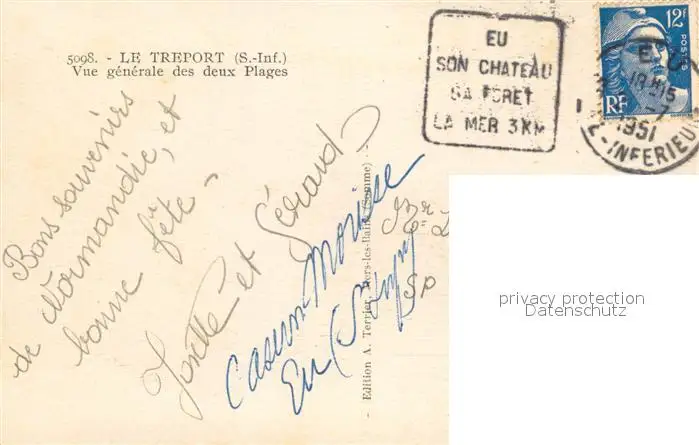 5098. - LE TREPORT (S.-Inf.)
Vue générale des deux Plages
EU
SON CHATEAU
SA FORET
LA MER 3KM
12F
POSTES
RF
EU
18H15
1951
E-INFERIEURE
Bons souvenirs
de Normandie, et
bonne fête -
Josette et Gérard
Edition A. Terrier, Mers-les-Bains (Somme)
Eu
privacy protection
Datenschutz